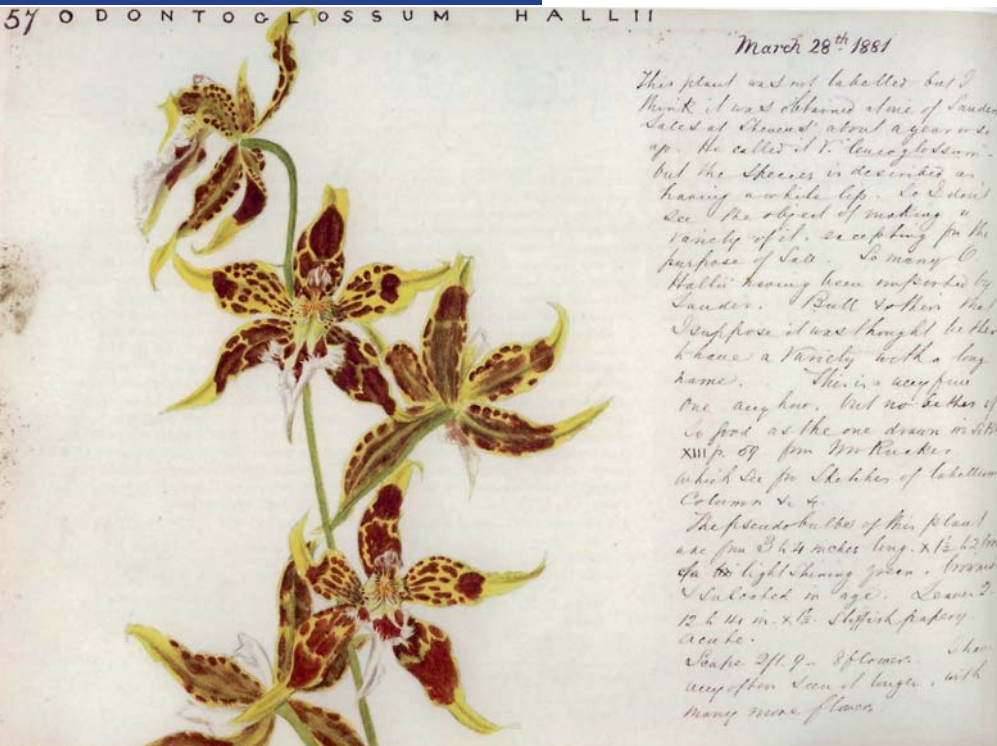 57 ODONTOGLOSSUM HALLII
March 28th 1881
This plant was not labelled but I
think it was obtained at one of Sander
Sales at Stevens' about a year or so
ago. He called it V. leucoglossum.
but the species is described as
having a white lip. So I don't
see the object of making a
variety of it. excepting for the
purpose of Sale. So many O.
Hallii having been imported by
Sander. Bull & others that
I suppose it was thought better
to have a variety with a long
name. This is a very fine
one any how. but no better if
so good as the one drawn in
XIII p. 69 from Mr Rucker
which see for Sketches of labellum
Column &c &.
The pseudobulbs of this plant
are from 3 to 4 inches long. x 1½ to 2
light shining green.
& sulcated in age. Leaves 2
12 to 14 in. x 1½. Stiffish papery.
acute.
Scape 2ft. 9 - 8 flowers. I have
very often seen it longer. with
many more flowers